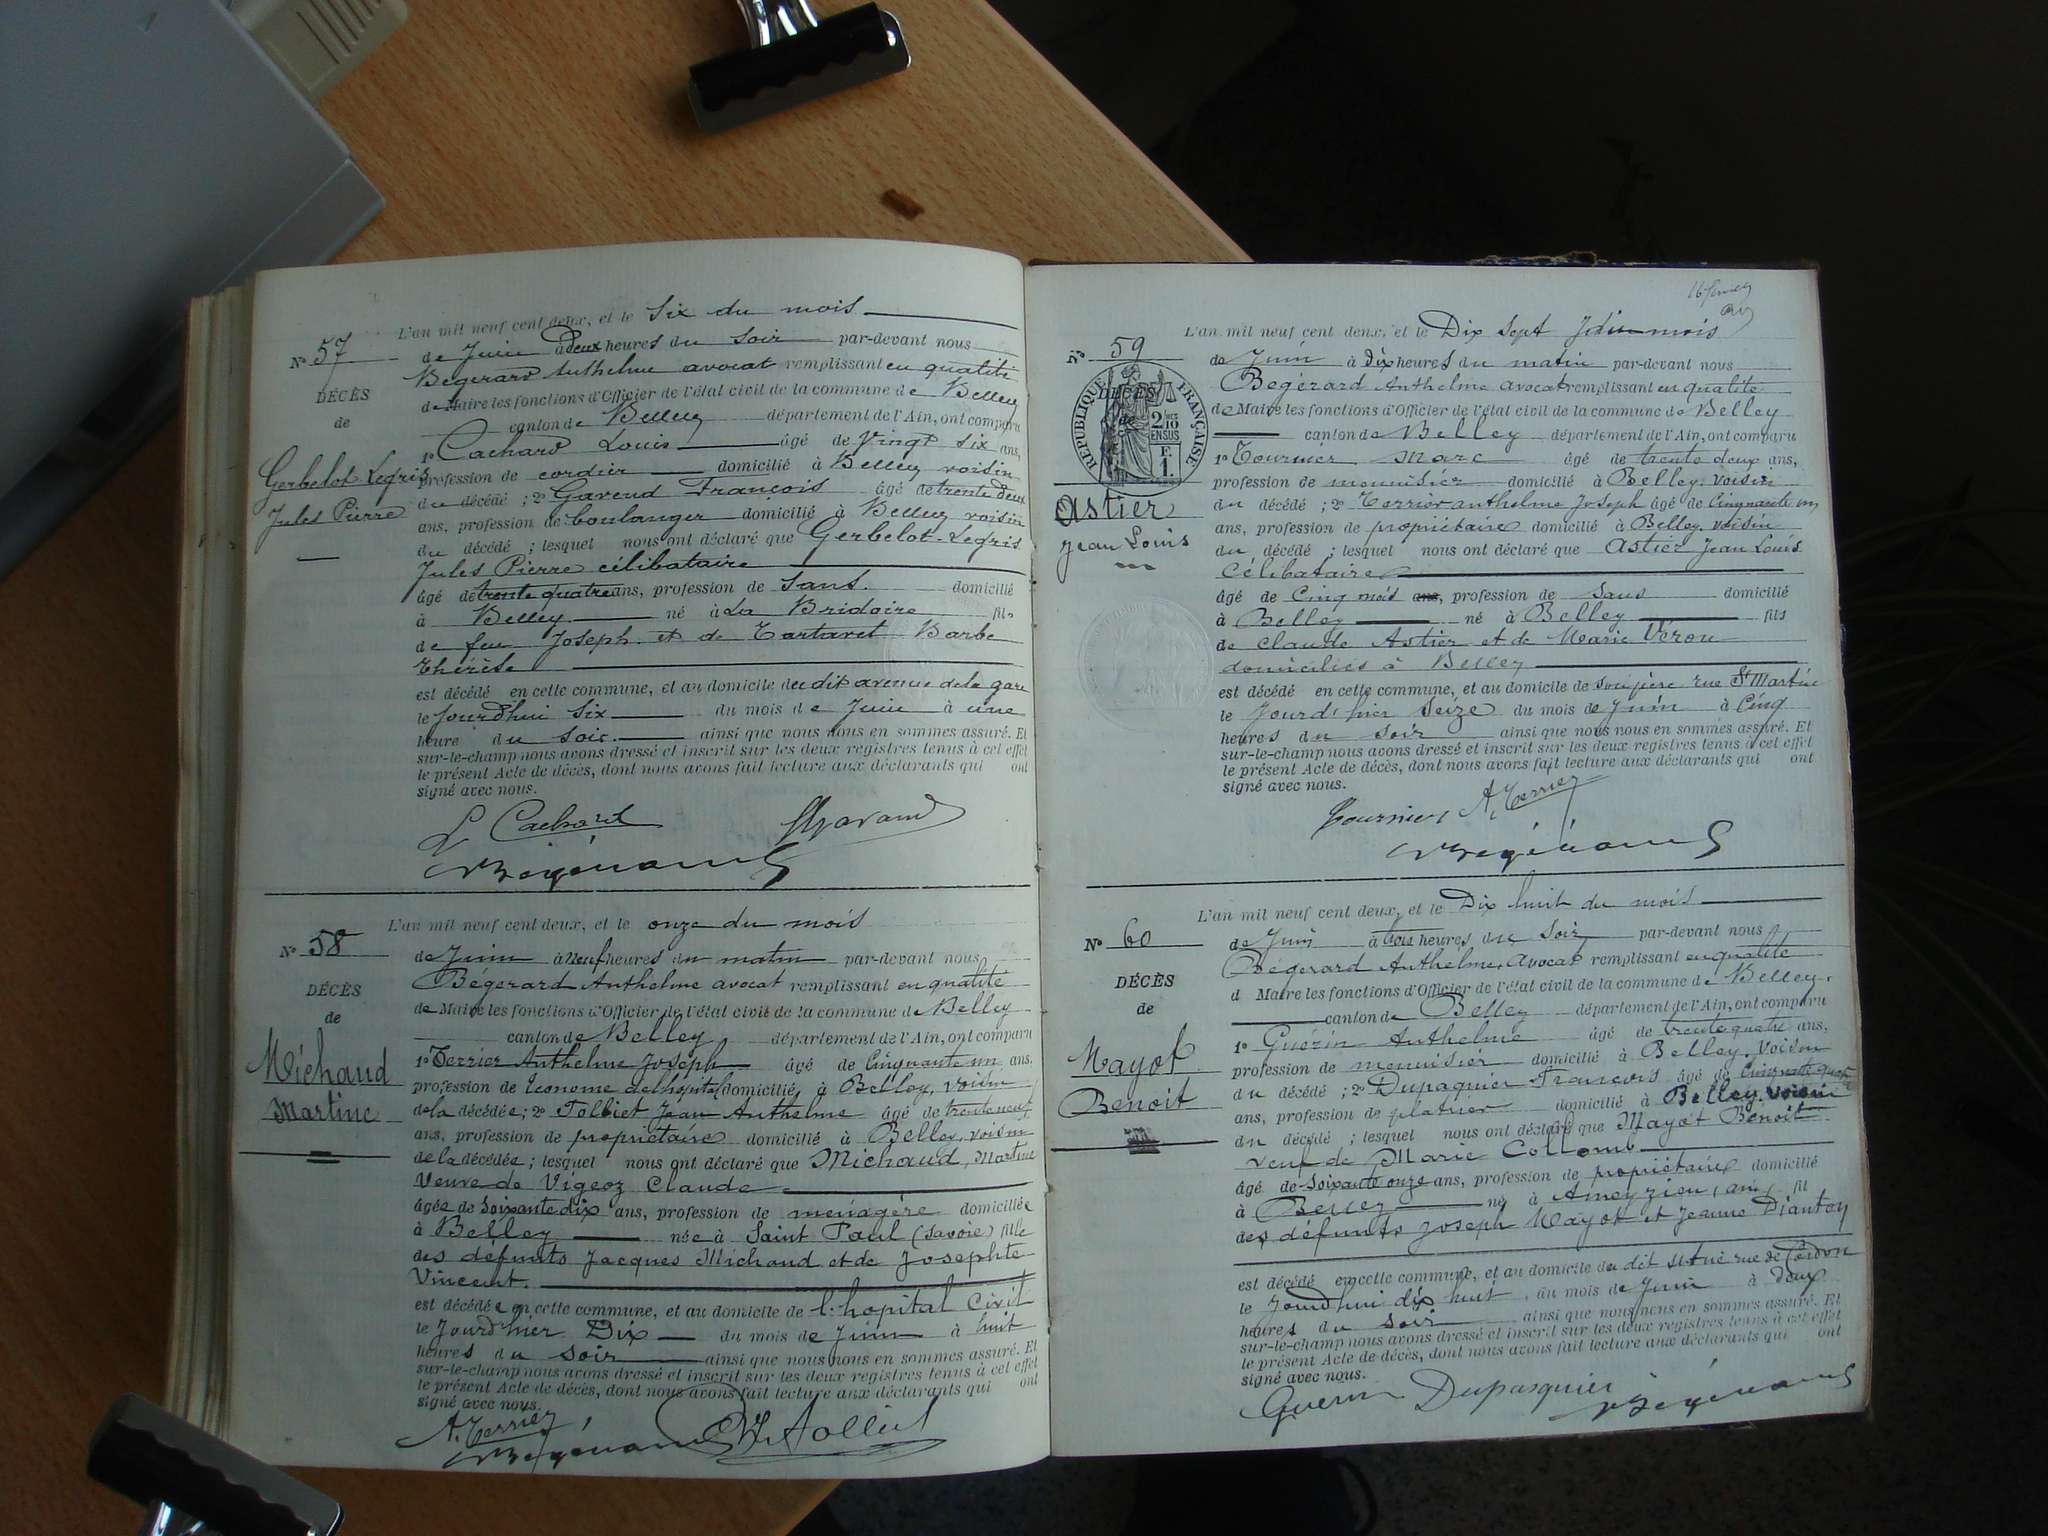 L'an mil neuf cent deux, et le Six du mois
No 57
de Juin à deux heures du Soir par-devant nous
Bégerard Anthelme avocat remplissant en qualité
DÉCÈS
de Maire les fonctions d'Officier de l'état civil de la commune de Belley
de
canton de Belley département de l'Ain, ont comparu
1o Cachard Louis âgé de Vingt Six ans,
Gerbelot-Legris
profession de cordier domicilié à Belley voisin
du décédé ; 2o Gavend François âgé de trente deux
Jules Pierre
ans, profession de boulanger domicilié à Belley voisin
du décédé ; lesquel nous ont déclaré que Gerbelot-Legris
Jules Pierre célibataire
âgé de trente quatre ans, profession de Sans domicilié
à Belley né à La Bridoire fils
de feu Joseph et de Tartaret Barbe
Thérèse
est décédé en cette commune, et au domicile du dit avenue de la gare
le Jourd'hui Six du mois de Juin à une
heure du Soir ainsi que nous nous en sommes assuré. Et
sur-le-champ nous avons dressé et inscrit sur les deux registres tenus à cet effet
le présent Acte de décès, dont nous avons fait lecture aux déclarants qui ont
signé avec nous.
L Cachard
Bégérard
L'an mil neuf cent deux, et le onze du mois
No 58
de Juin à neuf heures du matin par-devant nous
Bégerard Anthelme avocat remplissant en qualité
DÉCÈS
de Maire les fonctions d'Officier de l'état civil de la commune de Belley
de
canton de Belley département de l'Ain, ont comparu
Michaud
1o Terrier Anthelme Joseph âgé de Cinquante un ans,
profession de Econome de l'hopital domicilié à Belley, voisin
Martine
de la décédée ; 2o Tolliet Jean Anthelme âgé de trente neuf
ans, profession de propriétaire domicilié à Belley, voisin
de la décédée ; lesquel nous ont déclaré que Michaud, Martine
Veuve de Vigeoz Claude
âgée de Soixante dix ans, profession de ménagère domiciliée
à Belley née à Saint Paul (Savoie) fille
des défunts Jacques Michaud et de Josephte
Vincent.
est décédée en cette commune, et au domicile de l'hopital Civil
le Jourd'hier Dix du mois de Juin à huit
heures du Soir ainsi que nous nous en sommes assuré. Et
sur-le-champ nous avons dressé et inscrit sur les deux registres tenus à cet effet
le présent Acte de décès, dont nous avons fait lecture aux déclarants qui ont
signé avec nous.
A. Terrier
Bégérard Tolliet
L'an mil neuf cent deux, et le Dix Sept mois
No 59
de Juin à Dix heures du matin par-devant nous
Bégérard Anthelme avocat remplissant en qualité
RÉPUBLIQUE FRANÇAISE
DÉCÈS
de
2/10
EN SUS
F.
1.
de Maire les fonctions d'Officier de l'état civil de la commune de Belley
canton de Belley département de l'Ain, ont comparu
1o Tournier Marc âgé de trente deux ans,
profession de menuisier domicilié à Belley, voisin
Astier
du décédé ; 2o Terrier anthelme Joseph âgé de Cinquante un
ans, profession de propriétaire domicilié à Belley, voisin
Jean Louis
du décédé ; lesquel nous ont déclaré que Astier Jean Louis
Célibataire
âgé de Cinq mois ans, profession de Sans domicilié
à Belley né à Belley fils
de Claude Astier et de Marie Véron
domiciliés à Belley
est décédé en cette commune, et au domicile de son père rue St Martin
le Jourd'hier Seize du mois de Juin à Cinq
heures du Soir ainsi que nous nous en sommes assuré. Et
sur-le-champ nous avons dressé et inscrit sur les deux registres tenus à cet effet
le présent Acte de décès, dont nous avons fait lecture aux déclarants qui ont
signé avec nous.
Tournier A. Terrier
Bégérard
L'an mil neuf cent deux, et le Dix huit du mois
No 60
de Juin à trois heures du Soir par-devant nous
Bégerard Anthelme, avocat remplissant en qualité
DÉCÈS
d Maire les fonctions d'Officier de l'état civil de la commune de Belley.
de
canton de Belley département de l'Ain, ont comparu
1o Guérin Anthelme âgé de trente quatre ans,
Mayot
profession de menuisier domicilié à Belley, voisin
du décédé ; 2o Dupaquier François âgé de Cinquante quatre
Benoit
ans, profession de platrier domicilié à Belley, voisin
du décédé ; lesquel nous ont déclaré que Mayot Benoit
veuf de Marie Collomb
âgé de Soixante onze ans, profession de propriétaire domicilié
à Belley né à Ameyzieu, ain, fil
des défunts Joseph Mayot et Jeanne Diantoy
est décédé en cette commune, et au domicile du dit situé rue de Cordon
le Jourd'hui dix huit, du mois de Juin à deux
heures du Soir ainsi que nous nous en sommes assuré. Et
sur-le-champ nous avons dressé et inscrit sur les deux registres tenus à cet effet
le présent Acte de décès, dont nous avons fait lecture aux déclarants qui ont
signé avec nous.
Guerin Dupasquier Bégérard